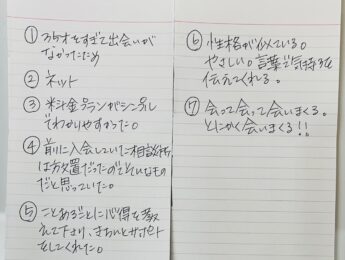 ① 35才をすぎて出会いが
なかったため
② ネット
③ 料金プランがシンプル
でわかりやすかった。
④ 前に入会していた相談所
は放置だったのでそんなもの
だと思っていた。
⑤ ことあるごとに心得を教
えて下さり、きちんとサポート
をしてくれた。
⑥ 性格が似ている。
やさしい。言葉で気持ちを
伝えてくれる。
⑦ 会って会って会いまくる。
とにかく会いまくる!!